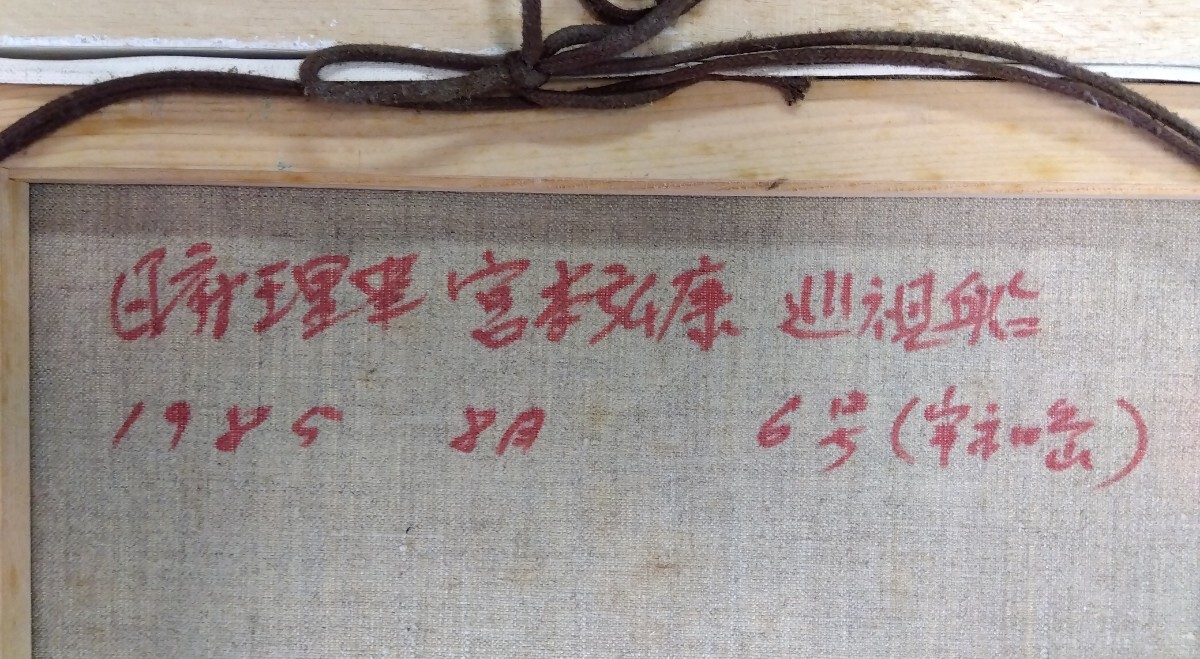 日府理事 宮本弘康 巡視船
1985 8月 6号(宇和島)